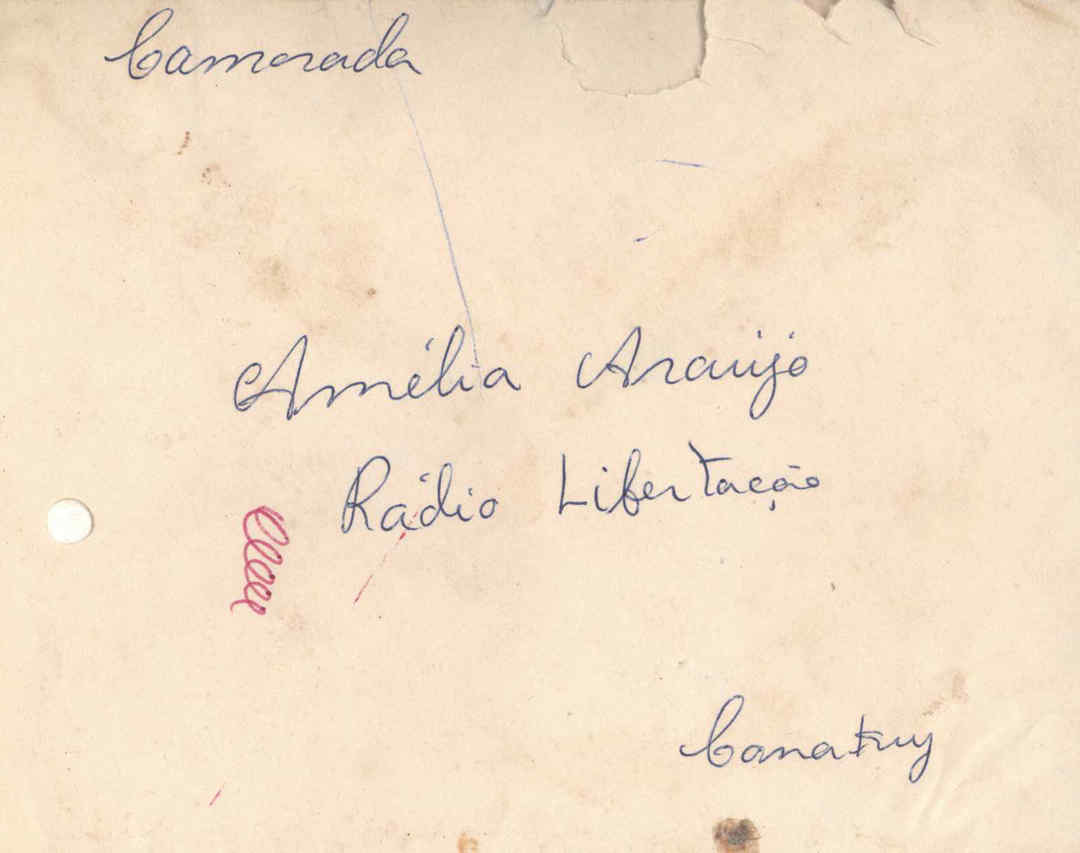 Camarada
Amélia Araújo
Rádio Libertação
Conakry